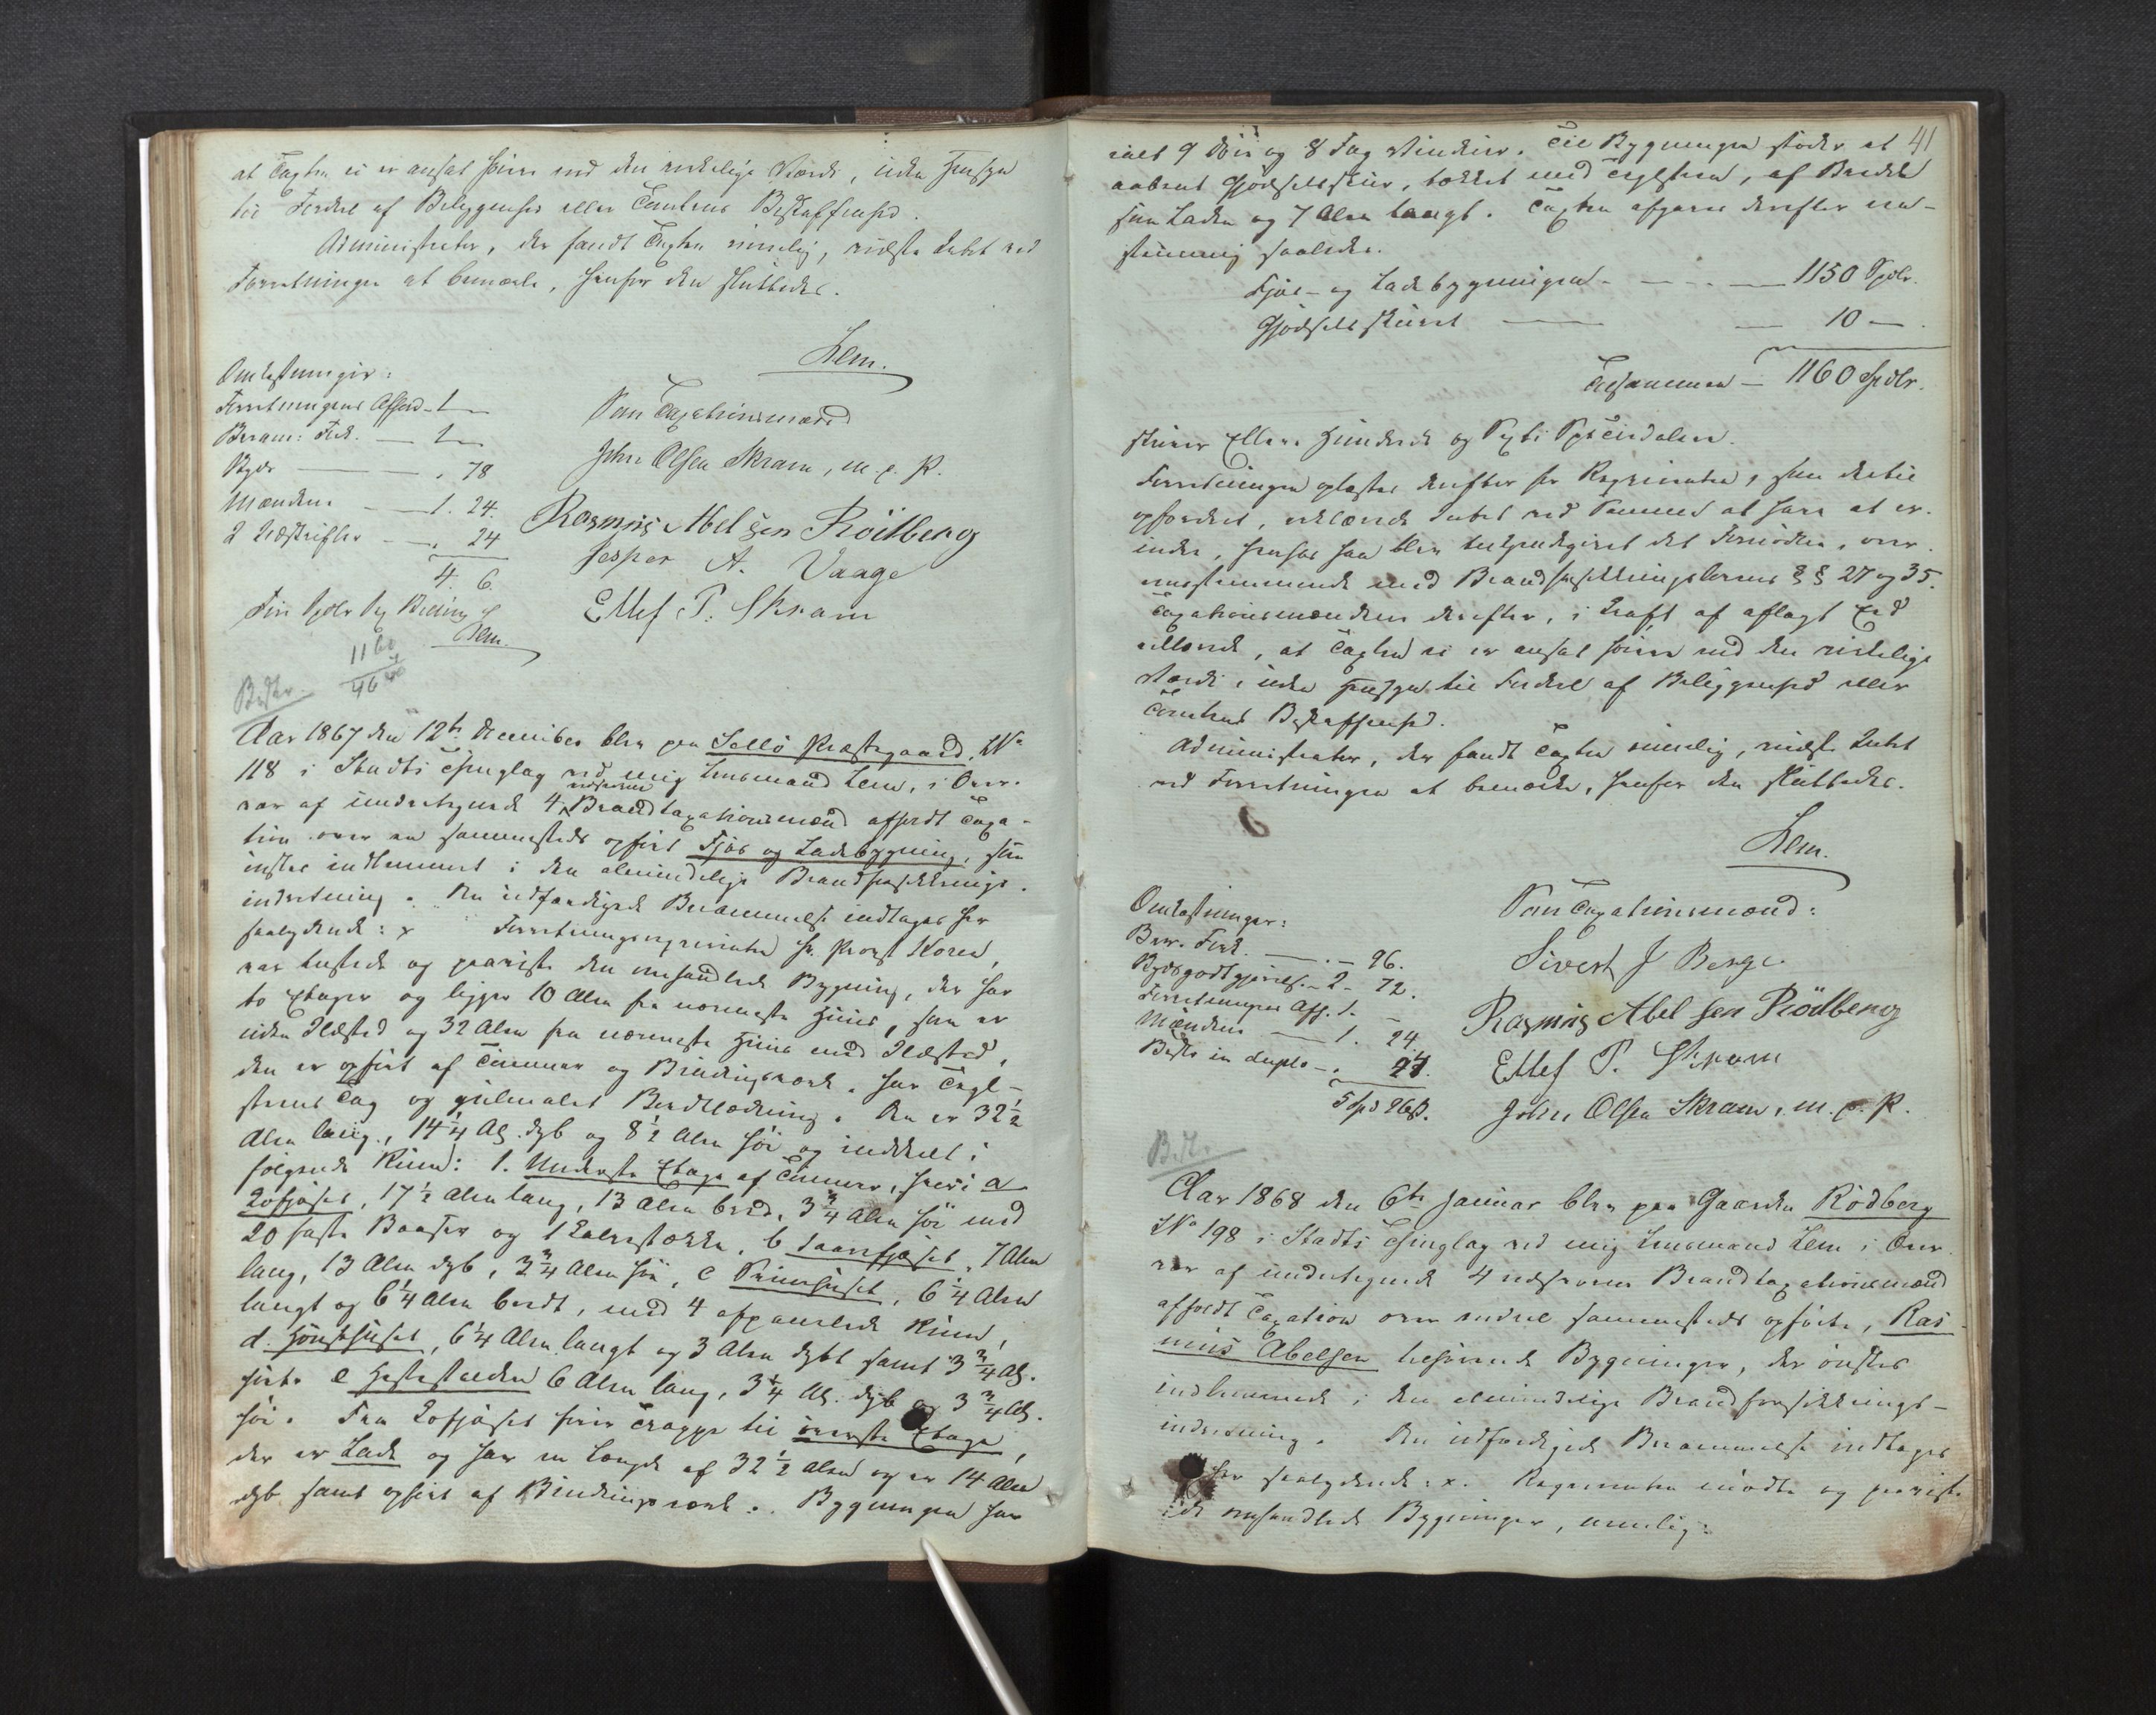 at Taxten ei er ansat høiere end den virkelige Værdi, uden Hensyn
til Fordeel af Beliggenhed eller Tomtens Beskaffenhed.
Administrator, der fandt Taxten rimelig, vidste Intet ved
Forretningen at bemærke, hvorfor den sluttedes.
Lem.
Omkostninger:
Forretningens Afhold - 1 —
Beram: Ford. — 1 —
Skyds — . 78
Mændene — 1. 24.
2 Udskrifter — . 24
4. 6.
Fire Spdlr Sex Skilling
Lem.
Som Taxationsmænd
John Olsen Skram, m. p. P.
Rasmus Abelsen Rödberg
Jesper A. Vaage
Ellef P. Skram
1160
46
Aar 1867 den 12te December blev paa Selló Præstegaard, L No
118 i Stadts Thinglag ved mig Lensmand Lem, i Over-
vær af undertegnede 4 edsvorne Brandtaxationsmænd afholdt Taxa-
tion over en sammesteds opført Fjøs og Ladebygning, som
ønskes indlemmet i den almindelige Brandforsikkrings-
indretning. Den udfærdigede Berammelse indtages her
saalydende: x Forretningsrekvirenten Hr. Provst Koren,
var tilstede og paaviste den omhandlede Bygning, der har
to Etager og ligger 10 Alen fra nærmeste Huus, som er
uden Ildsted og 32 Alen fra nærmeste Huus med Ildsted,
den er opført af Tømmer og Bindingsværk, har Tegl-
steens Tag og guulmalet Bordklædning. Den er 32 1/2
Alen lang, 14 1/4 Al. dyb og 8 1/2 Alen høi og inddeelt i
følgende Rum: 1. Underste Etage af Tømmer, hvori a
Kofjøset, 17 1/2 Alen lang, 13 Alen bred, 3 3/4 Alen høi med
20 faste Baaser og 1 Kalvestække, b Faarefjøset, 7 Alen
lang, 13 Alen dyb, 3 3/4 Alen høi, c Sviinehuset, 6 1/4 Alen
langt og 6 1/4 Alen bredt, med 4 afpanelede Rum,
d. Hönsehuset, 6 1/4 Alen langt og 3 Alen dybt samt 3 3/4 Al.
høit. e Hestestalden 6 Alen lang, 3 1/4 Al. dyb og 3 3/4 Al.
høi. Fra Kofjøset fører Trappe til øverste Etage,
der er Lade og har en Længde af 32 1/2 Alen og er 14 Alen
dyb samt opført af Bindingsværk. Bygningen har
41
ialt 9 Døre og 8 Fag Vinduer. Til Bygningen støder et
aabent Gjødselsskuur, tækket med Teglsteen, af Bredde
som Laden og 7 Alen langt. Taxten afgaves derefter een-
stemmig saaledes.
Fjøs- og Ladebygningen — 1150 Spdlr.
Gjødselsskuret — 10 —
Tilsammen — 1160 Spdlr.
skriver Elleve Hundrede og Sexti Speciedaler.
Forretningen oplæstes derefter for Rekvirenten, som dertil
opfordret, erklærede Intet ved Samme at have at er-
indre, hvorhos han blev tilkjendegivet det Fornødne, over-
eensstemmende med Brandforsikkringslovens §§ 27 og 35.
Taxationsmændene derefter, i Kraft af aflagt Eed
erklærede, at Taxten ei er ansat høiere end den virkelige
Værdi, uden Hensyn til Fordeel af Beliggenhed eller
Tomtens Beskaffenhed.
Administrator, der fandt Taxten rimelig, vidste Intet
ved Forretningen at bemærke, hvorfor den sluttedes.
Lem.
Omkostninger:
Ber. Ford. — . — 96.
Skydsgodtgjørelse - 2 - 72.
Forretningens Afh. 1. —
Mændene — 1. 24.
Beskr. in duplo — . 24.
5 Spd 96 ß.
Som Taxationsmænd:
Sivert J Berge.
Rasmus Abelsen Rödberg
Ellef P. Skram
John Olsen Skram, m. p. P.
Aar 1868 den 6te Januar blev paa Gaarden Rödberg
L No 198 i Stadts Thinglag ved mig Lensmand Lem i Over-
vær af undertegnede 4 edsvorne Brandtaxationsmænd
afholdt Taxation over endeel sammesteds opførte, Ras-
mus Abelsen tilhørende Bygninger, der ønskes
indlemmede i den almindelige Brandforsikkrings-
indretning. Den udfærdigede Berammelse indtages
her saalydende: x. Rekvirenten mødte og paaviste
de omhandlede Bygninger, nemlig: